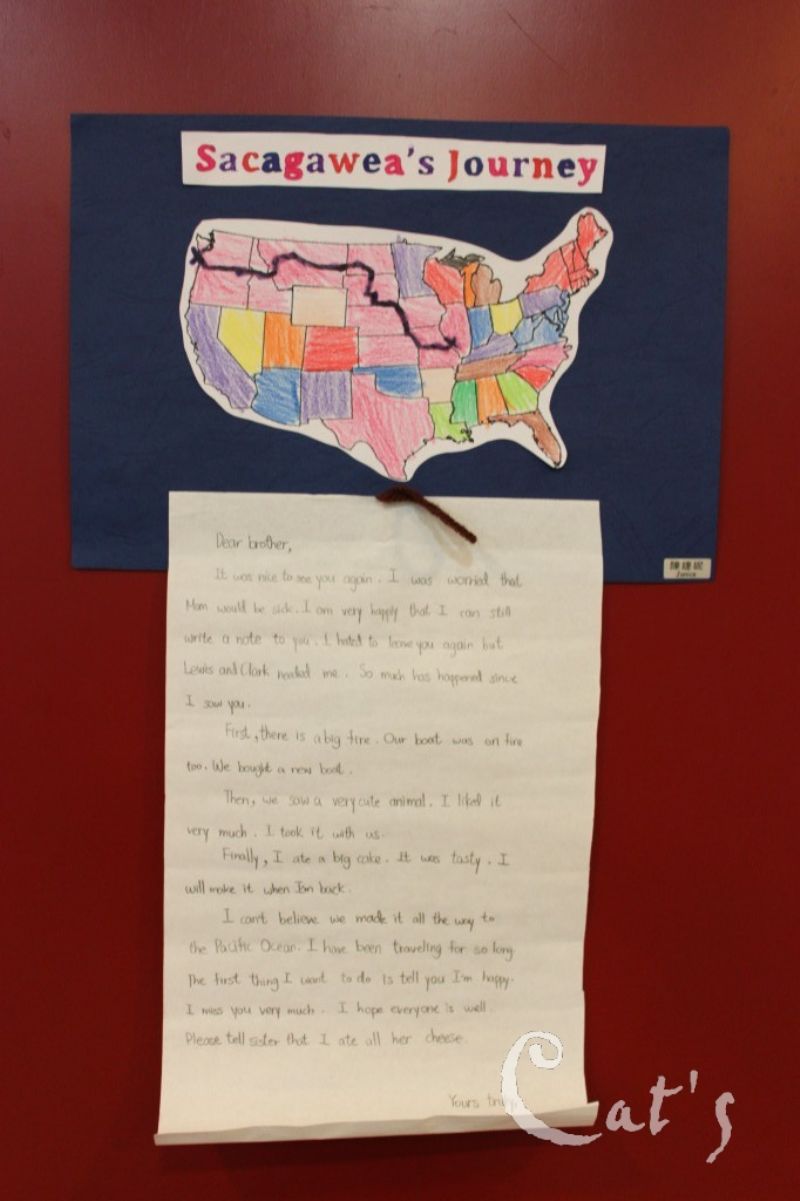 Sacagawea's Journey
陳婕妮
Junice
Dear brother,
It was nice to see you again. I was worried that
Mom would be sick. I am very happly that I can still
write a note to you. I hated to leave you again but
Lewis and Clark needed me. So much has happened since
I saw you.
First, there is a big fire. Our boat was on fire
too. We bought a new boat.
Then, we saw a very cute animal. I liked it
very much. I took it with us.
Finally, I ate a big cake. It was tasty. I
will make it when I'm back.
I can't believe we made it all the way to
the Pacific Ocean. I have been traveling for so long.
The first thing I want to do is tell you I'm happy.
I miss you very much. I hope everyone is well.
Please tell sister that I ate all her cheese.
Yours truly,
Cat's